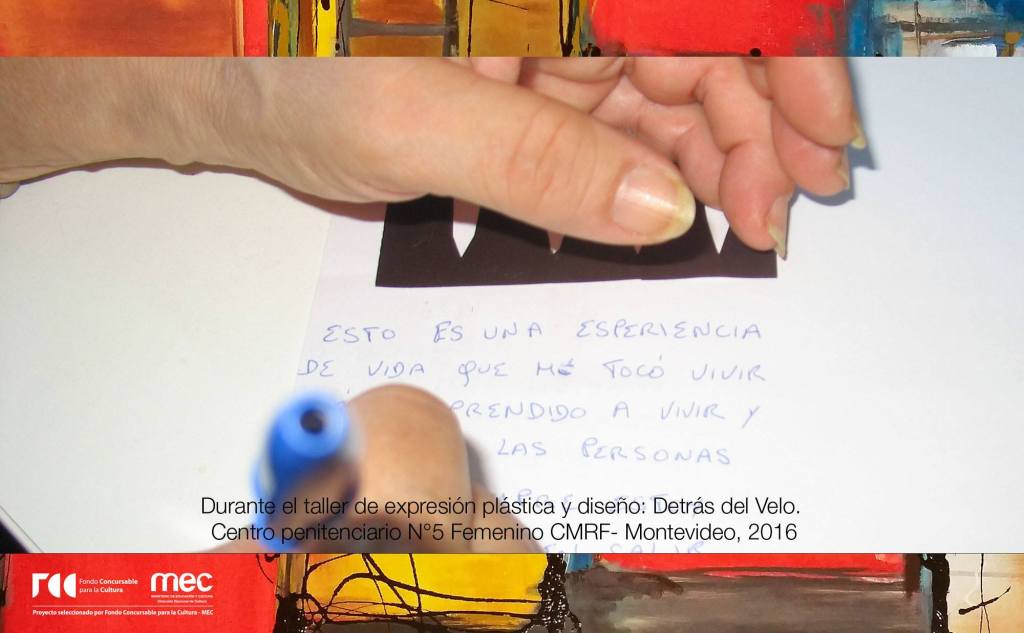 ESTO ES UNA ESPERIENCIA
DE VIDA QUE ME TOCÓ VIVIR
PRENDIDO A VIVIR Y
LAS PERSONAS
Durante el taller de expresión plástica y diseño: Detrás del Velo.
Centro penitenciario N°5 Femenino CMRF- Montevideo, 2016
Fondo Concursable
para la Cultura
mec
MINISTERIO DE EDUCACIÓN Y CULTURA
Dirección Nacional de Cultura
Proyecto seleccionado por Fondo Concursable para la Cultura - MEC